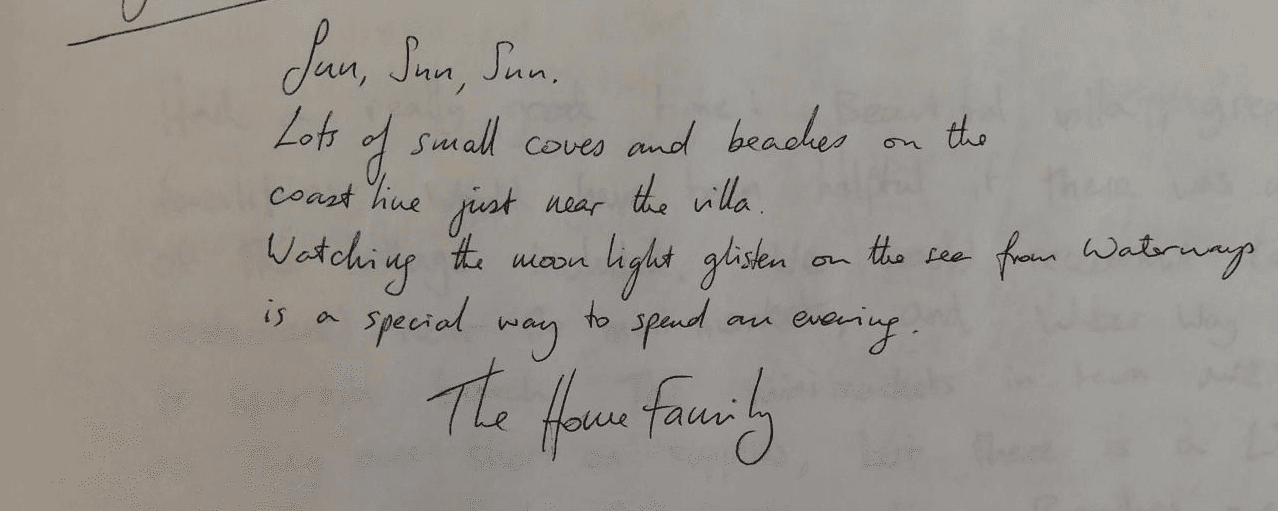 Sun, Sun, Sun.
Lots of small coves and beaches on the
coast line just near the villa.
Watching the moon light glisten on the see from Waterways
is a special way to spend an evening.
The Home Family